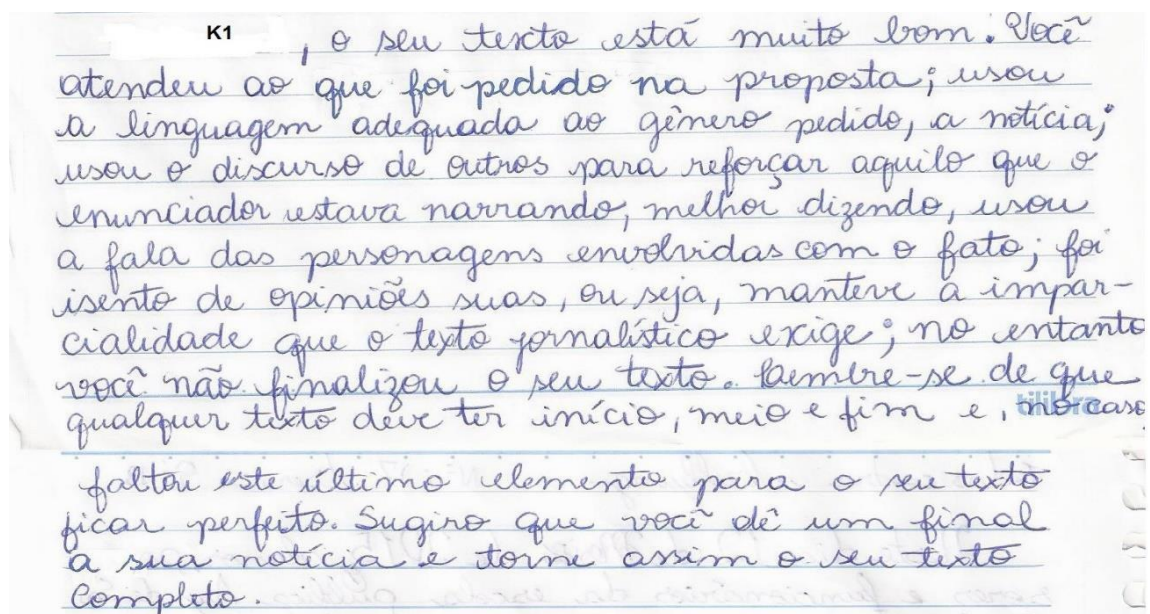 K1, o seu texto está muito bom. Você
atendeu ao que foi pedido na proposta; usou
a linguagem adequada ao gênero pedido, a notícia;
usou o discurso de outros para reforçar aquilo que o
enunciador estava narrando, melhor dizendo, usou
a fala das personagens envolvidas com o fato; foi
isento de opiniões suas, ou seja, manteve a impar-
cialidade que o texto jornalístico exige; no entanto
você não finalizou o seu texto. Lembre-se de que
qualquer texto deve ter início, meio e fim e, no caso
tilibra
faltou este último elemento para o seu texto
ficar perfeito. Sugiro que você dê um final
a sua notícia e torne assim o seu texto
completo.